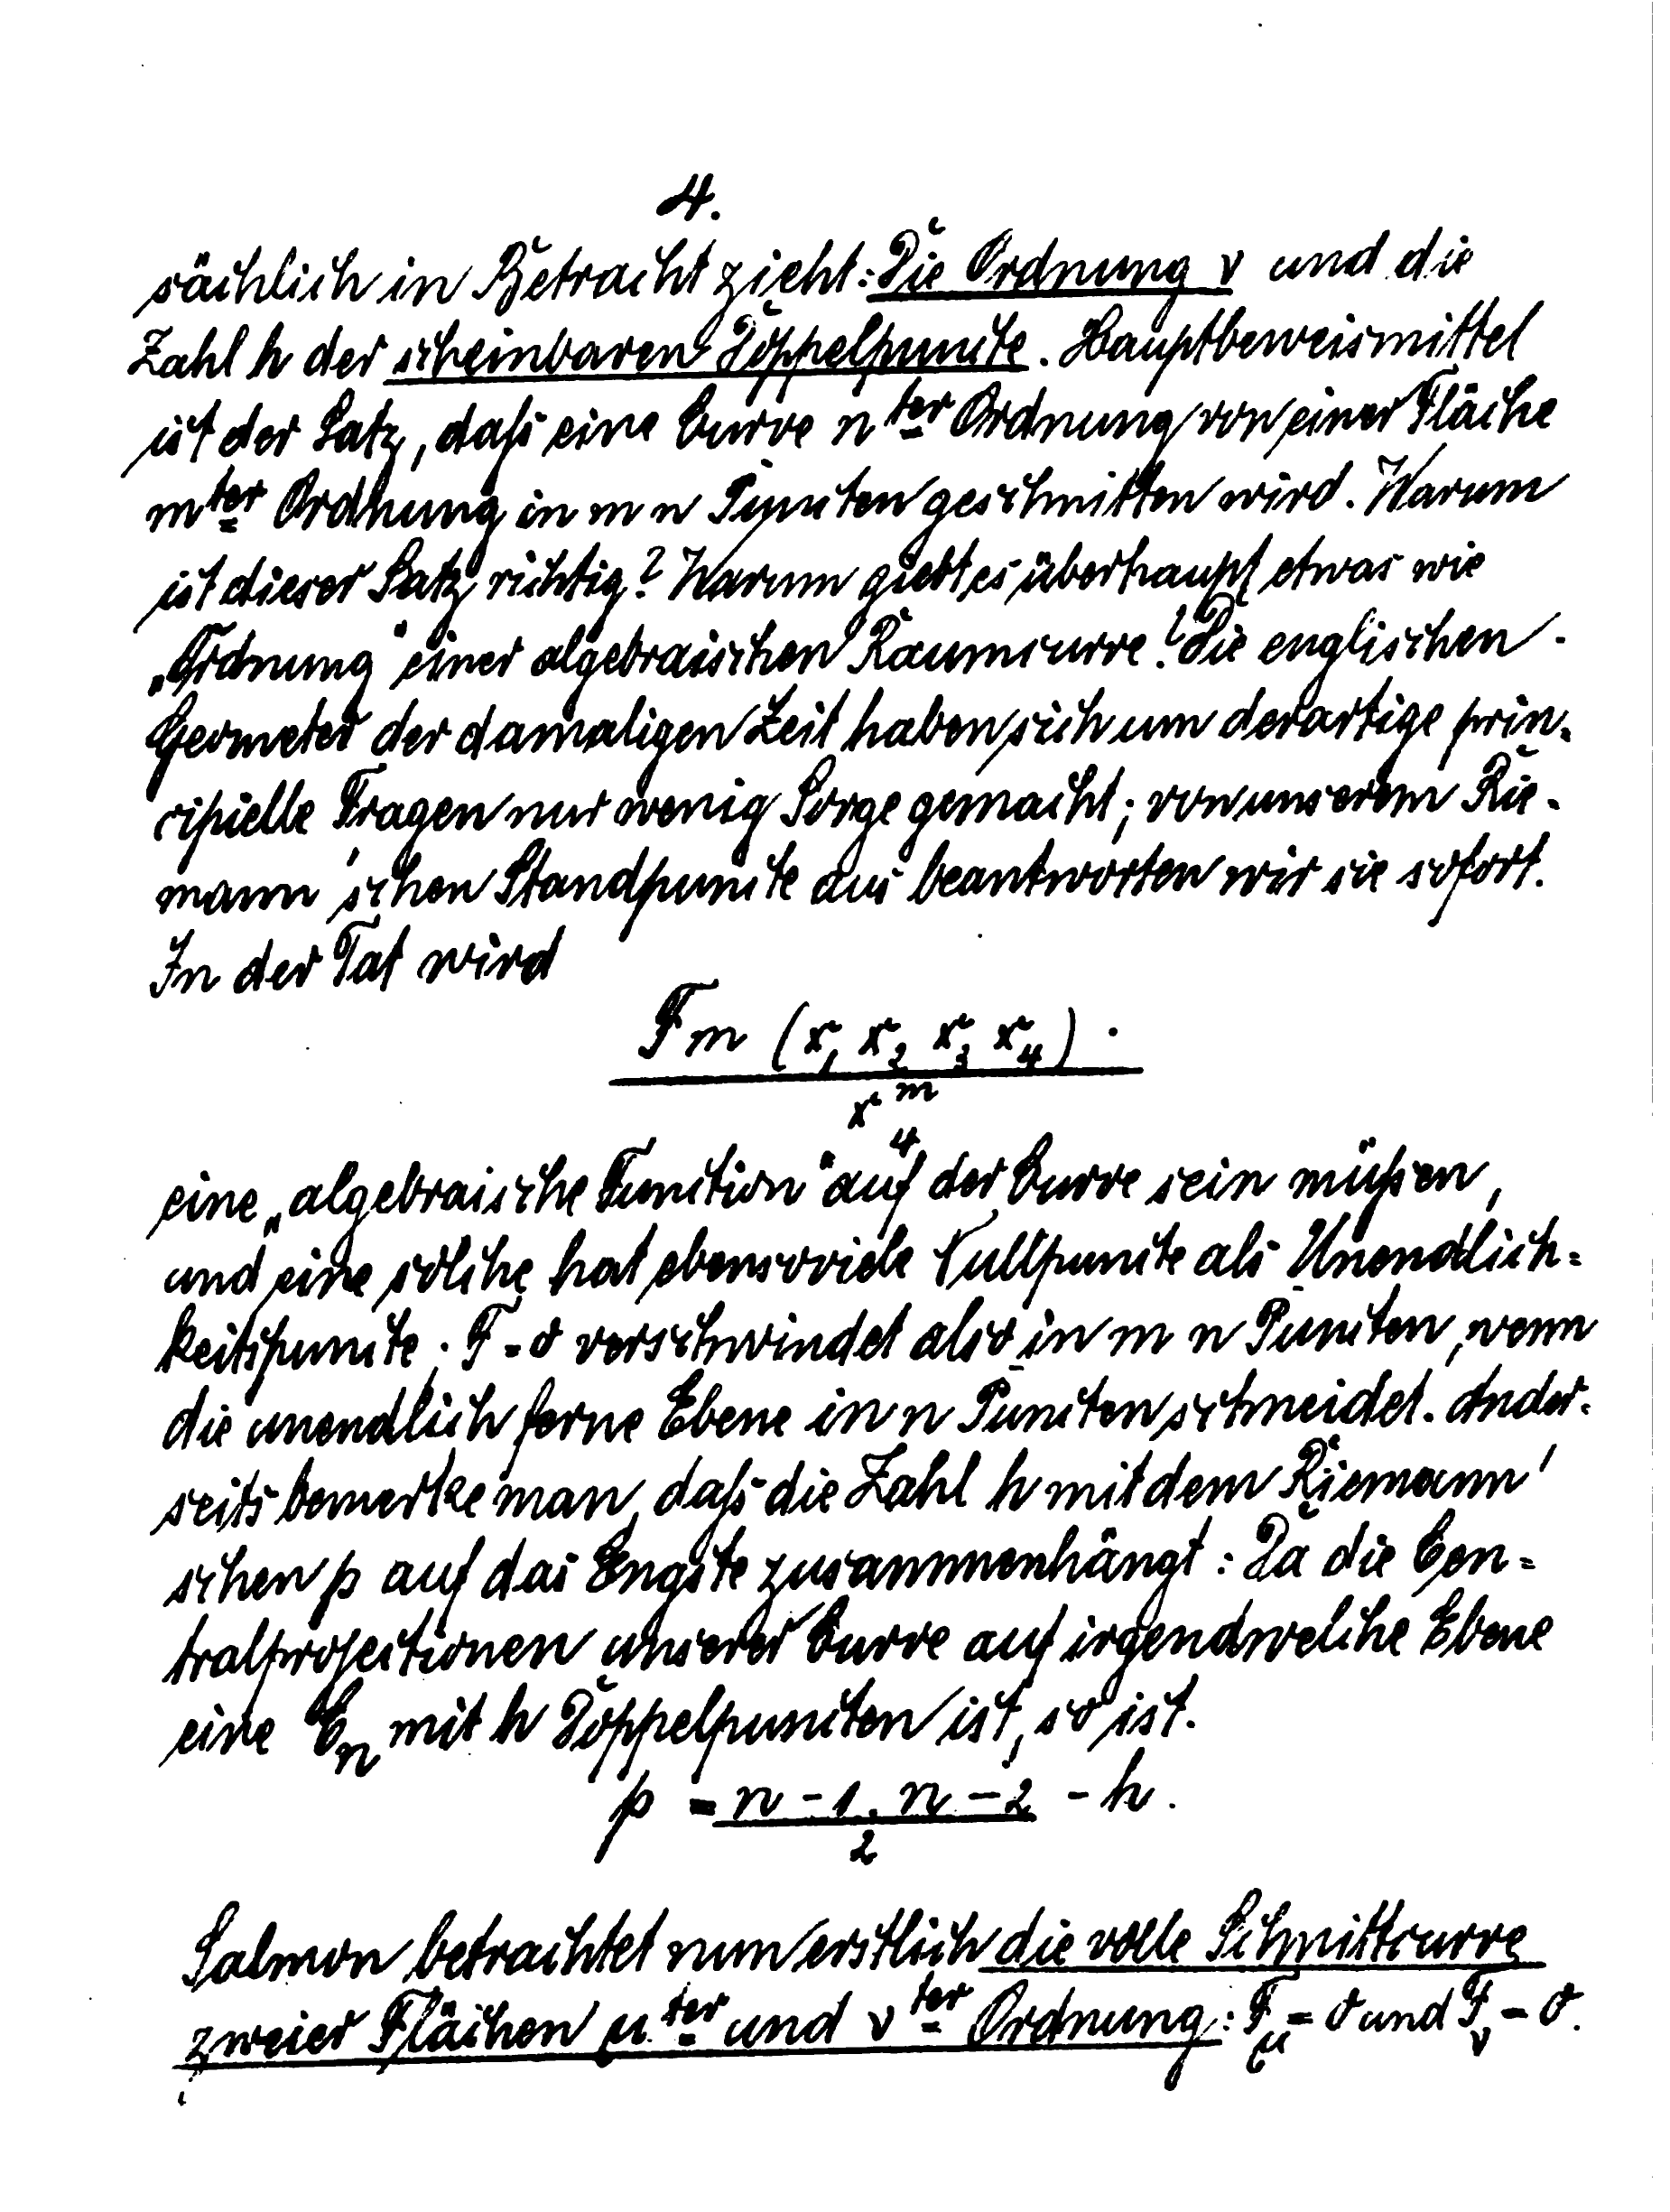 4.
sächlich in Betracht zieht: Die Ordnung ν und die
Zahl h der scheinbaren Doppelpuncte. Hauptbeweismittel
ist der Satz, daß eine Curve n ter Ordnung von einer Fläche
m ter Ordnung in m n Puncten geschnitten wird. Warum
ist dieser Satz richtig? Warum giebt es überhaupt etwas wie
„Ordnung" einer algebraischen Raumcurve? Die englischen
Geometer der damaligen Zeit haben sich um derartige prin-
cipielle Fragen nur wenig Sorge gemacht; von unserem Rie-
mann'schen Standpuncte aus beantworten wir sie sofort.
In der Tat wird
F m (x₁ x₂ x₃ x₄)
x₄ᵐ
eine „algebraische Function" auf der Curve sein müßen,
und eine solche hat ebensoviele Nullpuncte als Unendlich=
keitspuncte. F = 0 verschwindet also in m n Puncten, wenn
die unendlich ferne Ebene in n Puncten schneidet. Ander-
seits bemerke man, daß die Zahl h mit dem Riemann'
schen p auf das Engste zusammenhängt: Da die Cen=
tralprojectionen unserer Curve auf irgendwelche Ebene
eine Cₙ mit h Doppelpuncten ist, so ist.
p = n - 1 . n - 2 - h.
2
Salmon betrachtet nun erstlich die volle Schnittcurve
zweier Flächen μ ter und ν ter Ordnung: F_μ = 0 und F_ν = 0.